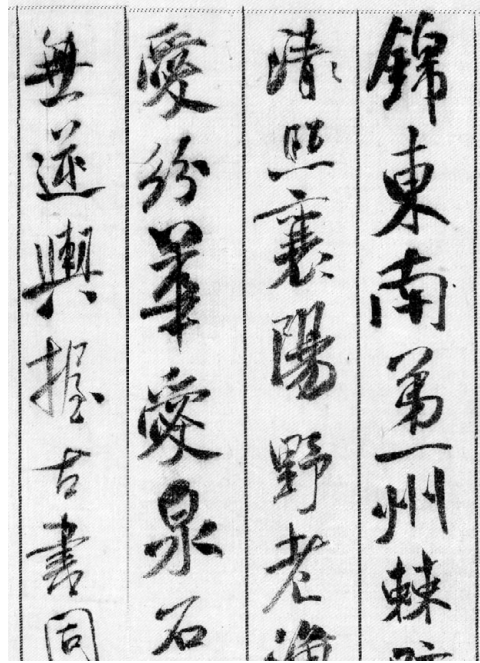 錦東南第一州棘
清照襄陽野老漁
愛紛華愛泉石
無逆輿握古書同